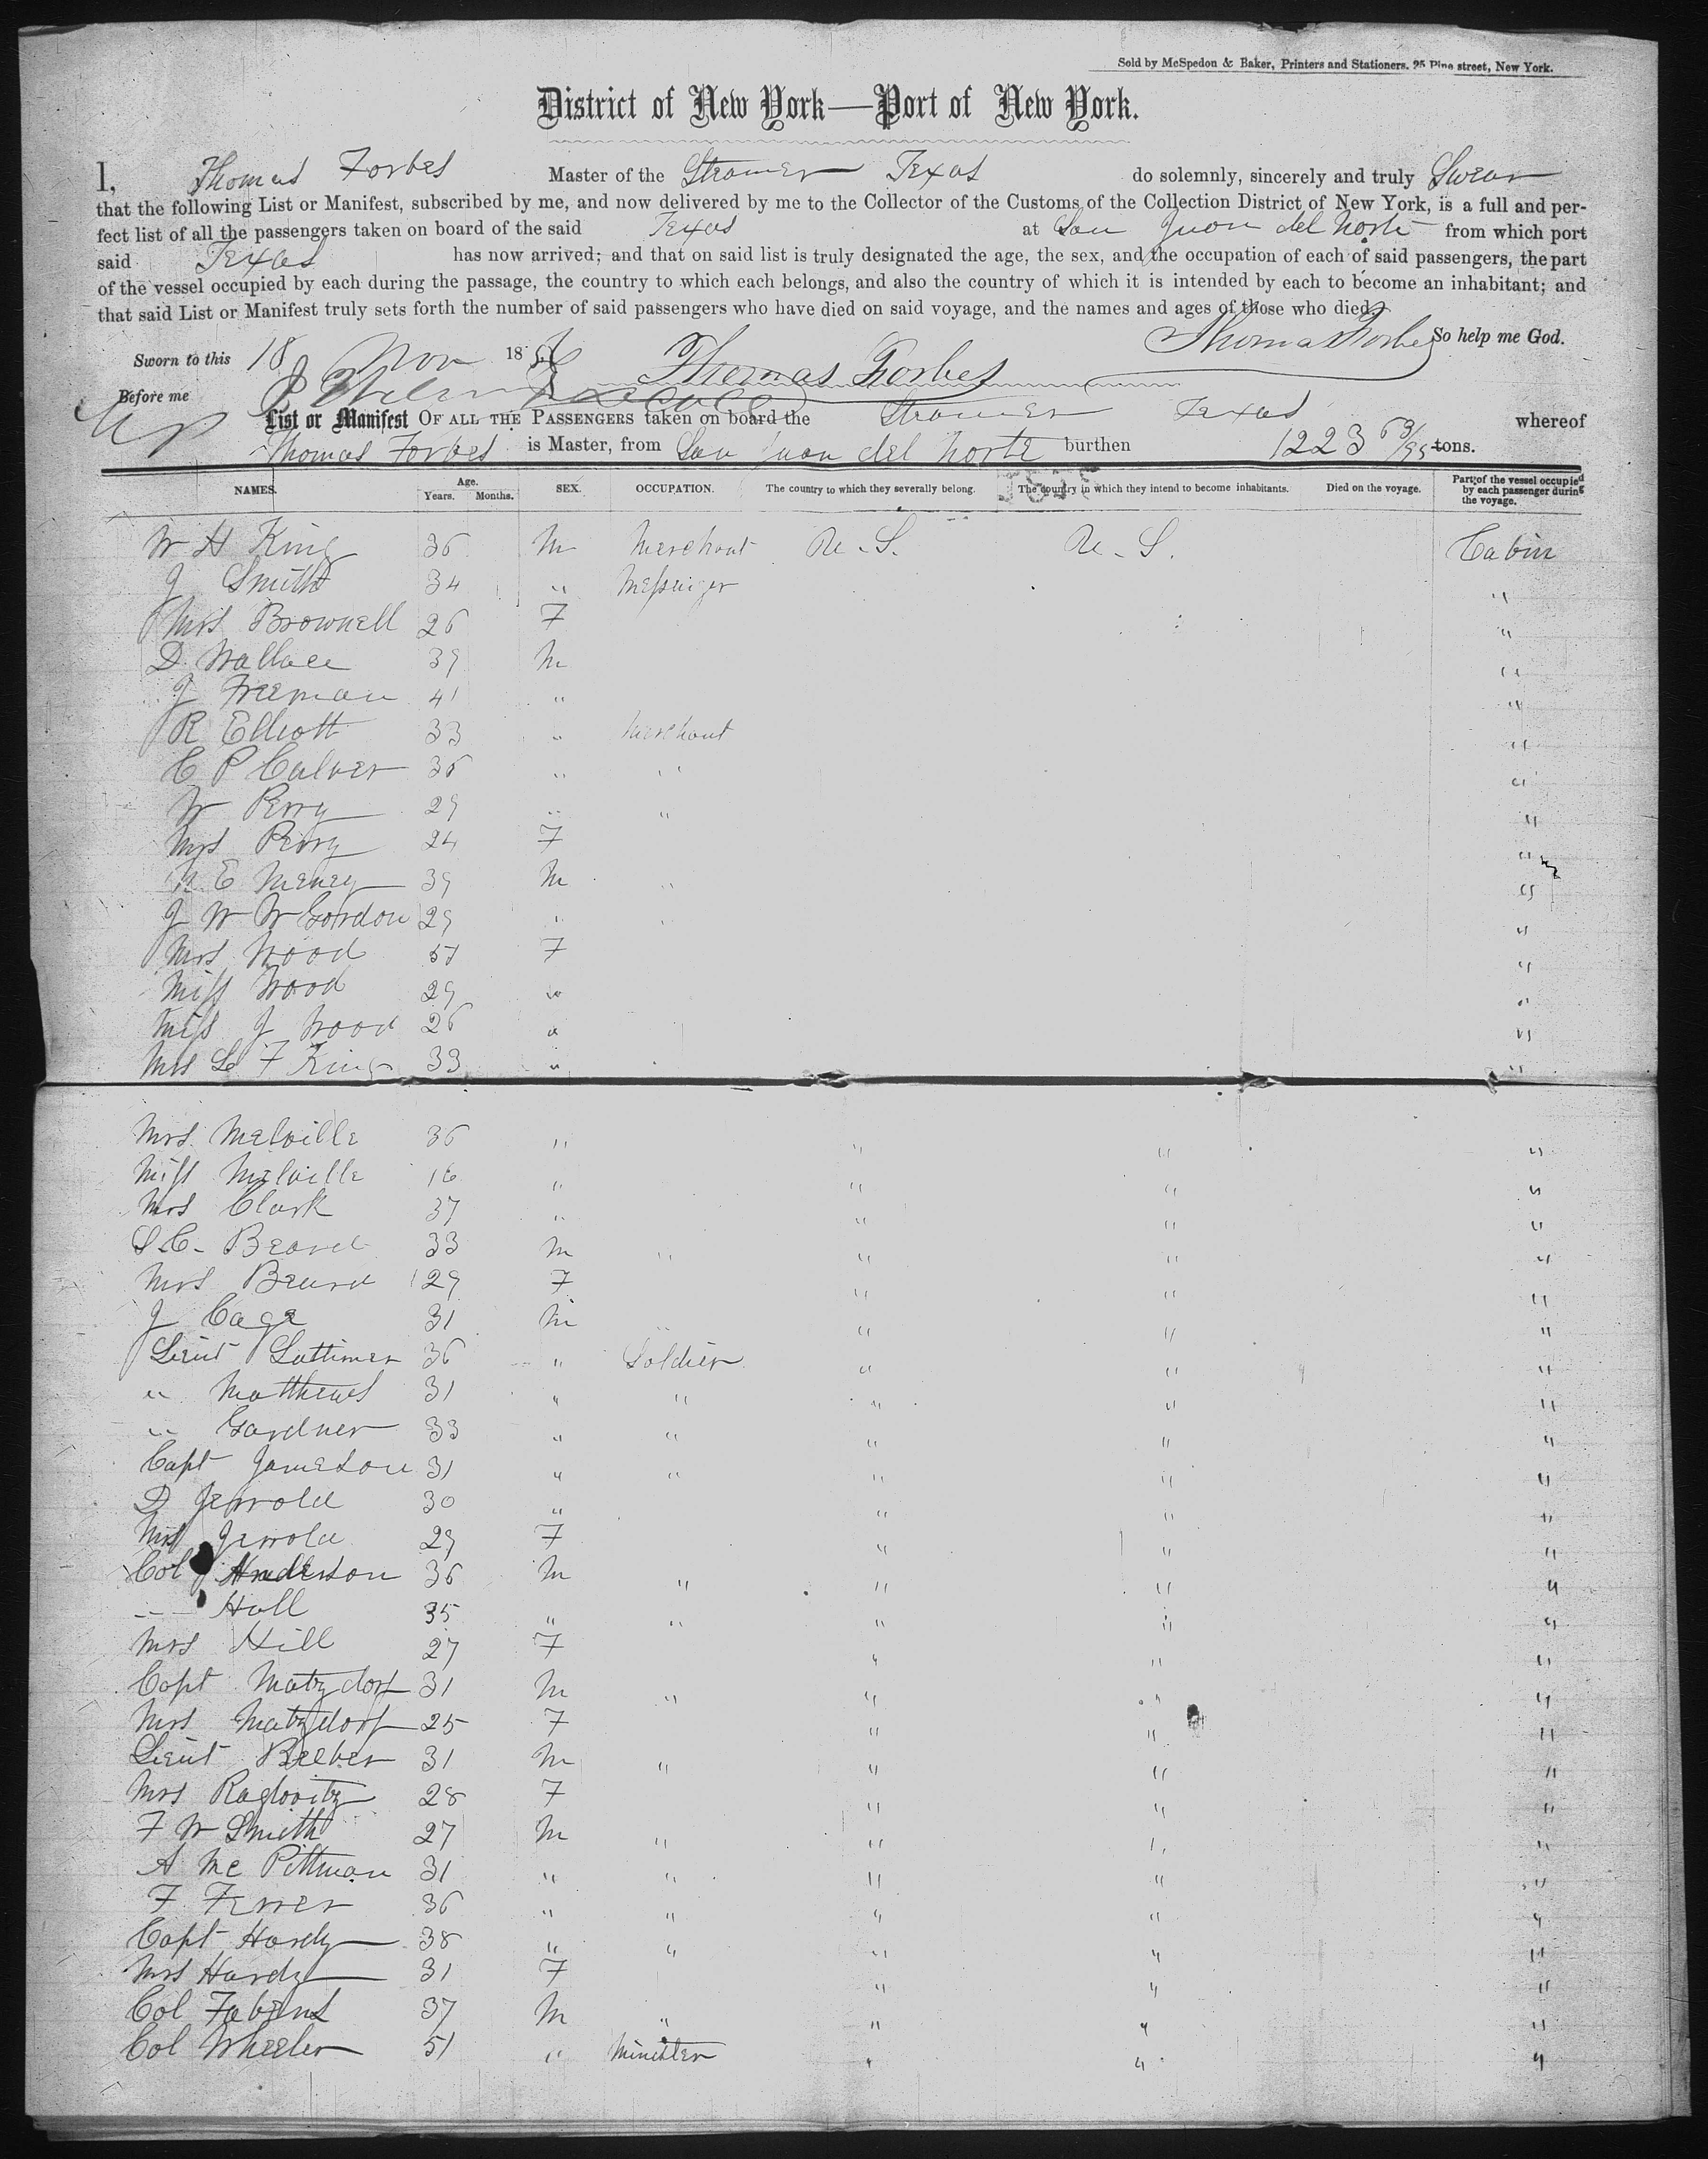 Sold by McSpedon & Baker, Printers and Stationers, 25 Pine street, New York.
District of New York—Port of New York.
I, Thomas Forbes Master of the Steamer Texas do solemnly, sincerely and truly Swear
that the following List or Manifest, subscribed by me, and now delivered by me to the Collector of the Customs of the Collection District of New York, is a full and per-
fect list of all the passengers taken on board of the said Texas at San Juan del Norte from which port
said Texas has now arrived; and that on said list is truly designated the age, the sex, and the occupation of each of said passengers, the part
of the vessel occupied by each during the passage, the country to which each belongs, and also the country of which it is intended by each to become an inhabitant; and
that said List or Manifest truly sets forth the number of said passengers who have died on said voyage, and the names and ages of those who died.
Thomas Forbes So help me God.
Sworn to this 18 Nov 1856 Thomas Forbes
Before me
List or Manifest OF ALL THE PASSENGERS taken on board the Steamer Texas whereof
Thomas Forbes is Master, from San Juan del Norte burthen 1223 tons.
NAMES. Age. Years. Months. SEX. OCCUPATION. The country to which they severally belong. The country in which they intend to become inhabitants. Died on the voyage. Part of the vessel occupied by each passenger during the voyage.
W H King 36 M Merchant U.S. U.S. Cabin
J Smith 34 " Messenger "
Mrs Brownell 26 F "
D. Wallace 39 M "
J Freeman 41 " "
R Elliott 33 " Merchant "
C P Culver 36 " " "
W Perry 29 " " "
Mrs Perry 24 F "
E Meney 39 M " "
J W W Gordon 29 " " "
Mrs Wood 57 F "
Miss Wood 29 " "
Miss J Wood 26 " "
Mrs L F King 33 " "
Mrs. Melville 36 " " " "
Miss Melville 16 " " " "
Mrs Clark 37 " " " "
S.C. Beard 33 M " " " "
Mrs Beard 29 F " " "
J Cage 31 M " " " "
Lieut Lattimer 36 " Soldier " " "
" Matthews 31 " " " " "
" Gardner 33 " " " " "
Capt Jameson 31 " " " " "
D Jerrold 30 " " " "
Mrs Jerrold 29 F " " "
Col Anderson 36 M " " " "
— Hall 35 " " " " "
Mrs Hill 27 F " " "
Capt Matzdorf 31 M " " " "
Mrs Matzdorf 25 F " " "
Lieut Beeber 31 M " " " "
Mrs Raglovitz 28 F " " "
F W Smith 27 M " " " "
A Mc Pittman 31 " " " " "
F. Ferrer 36 " " " " "
Capt Hardy 38 " " " " "
Mrs Hardy 31 F " " "
Col Fabens 37 M " " " "
Col Wheeler 51 " Minister " " "